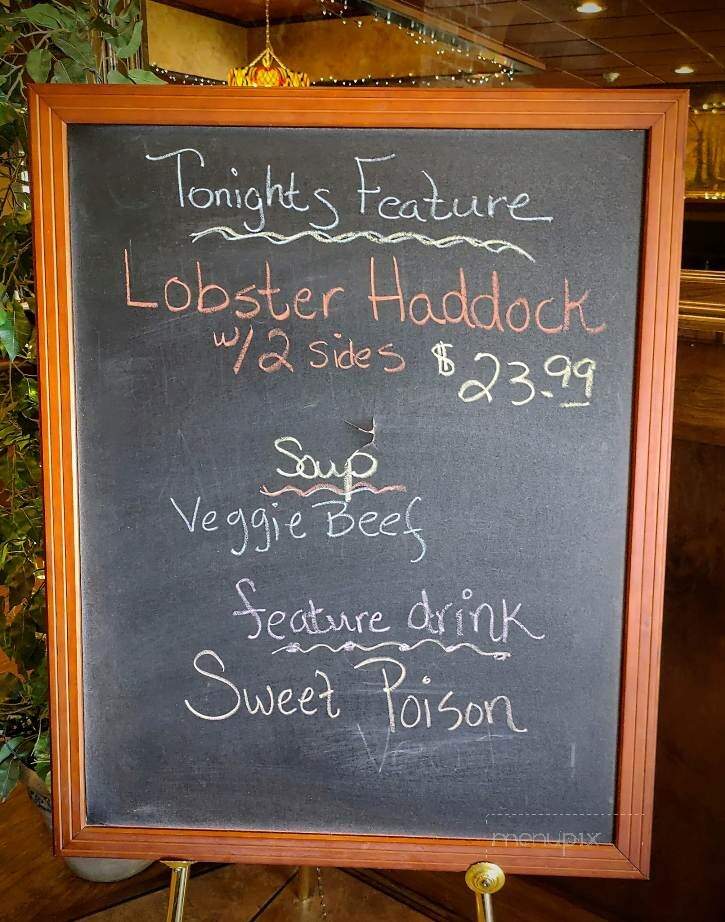 Tonights Feature
Lobster Haddock
w/2 sides $23.99
Soup
Veggie Beef
feature drink
Sweet Poison
menupix